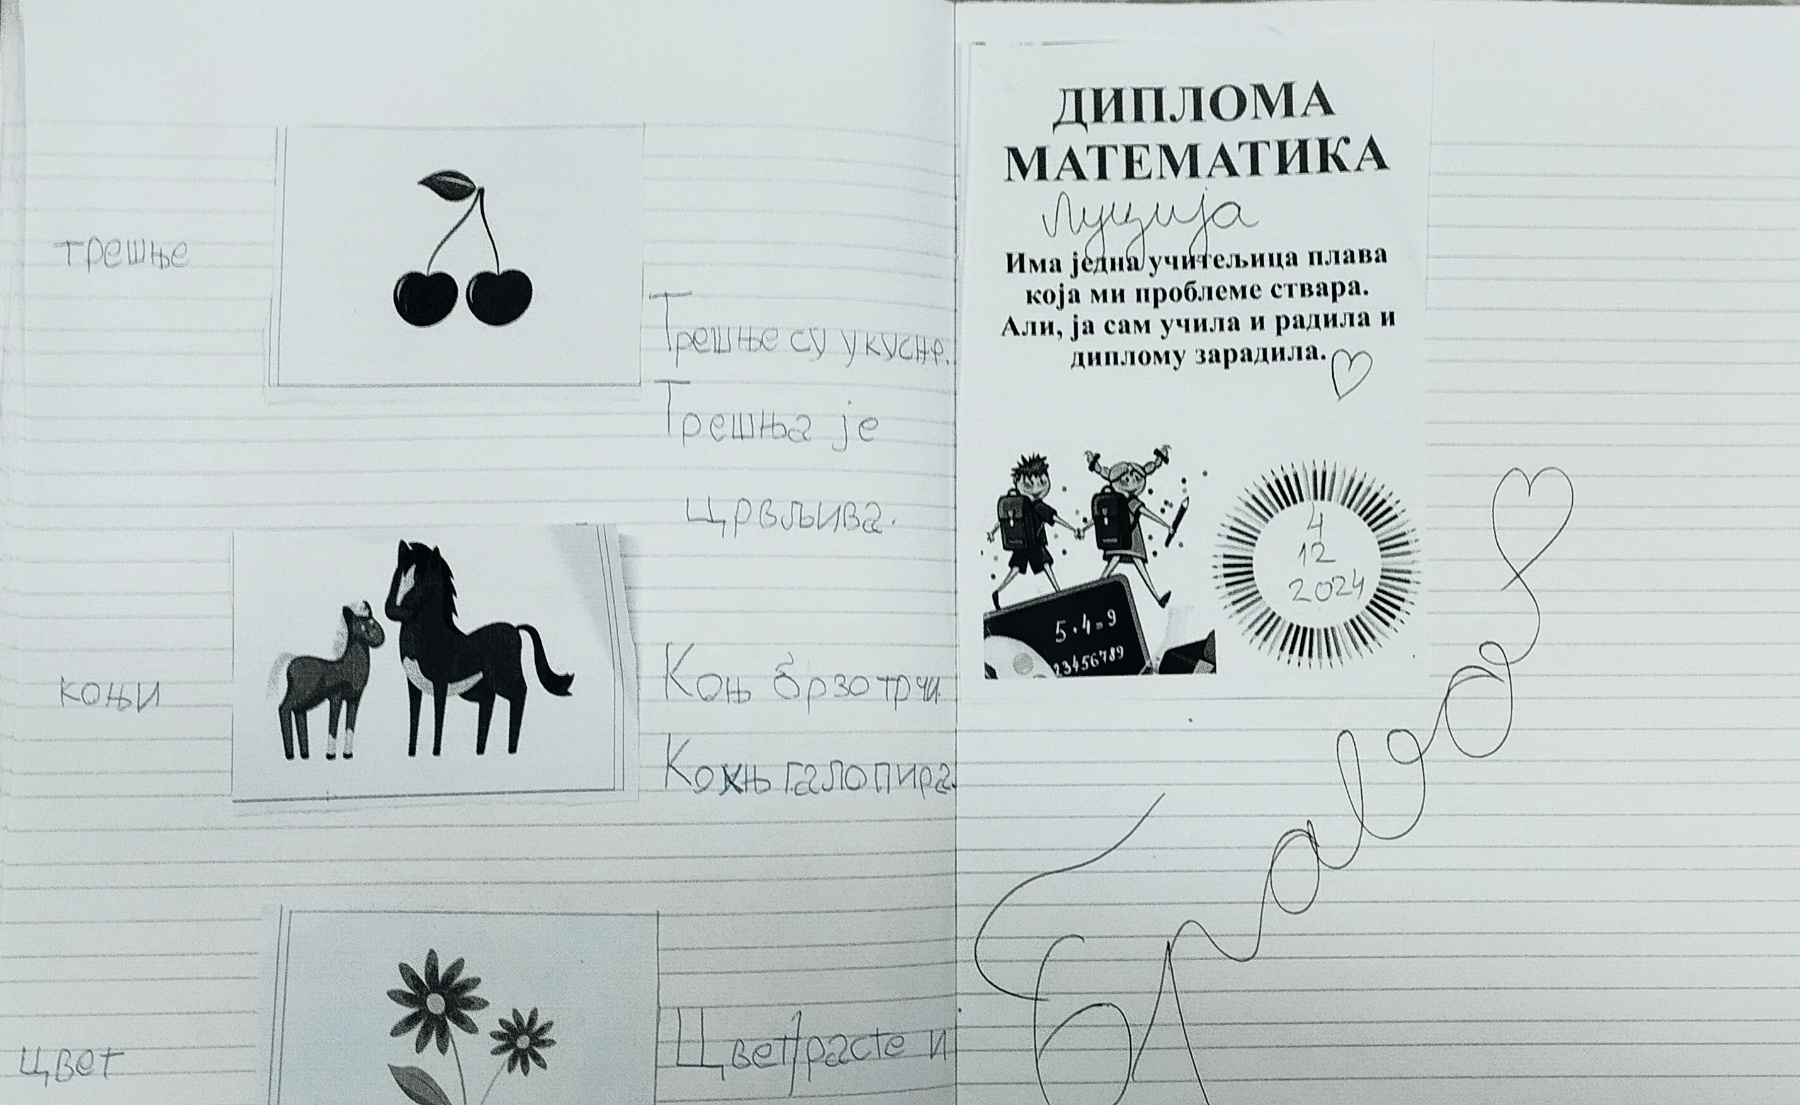 трешње
Трешње су укусне.
Трешња је
црвљива.
коњи
Коњ брзо трчи.
Коњ галопира.
цвет
Цвет расте и
ДИПЛОМА
МАТЕМАТИКА
Луција
Има једна учитељица плава
која ми проблеме ствара.
Али, ја сам учила и радила и
диплому зарадила.
5·4=9
123456789
4
12
2024
Браво